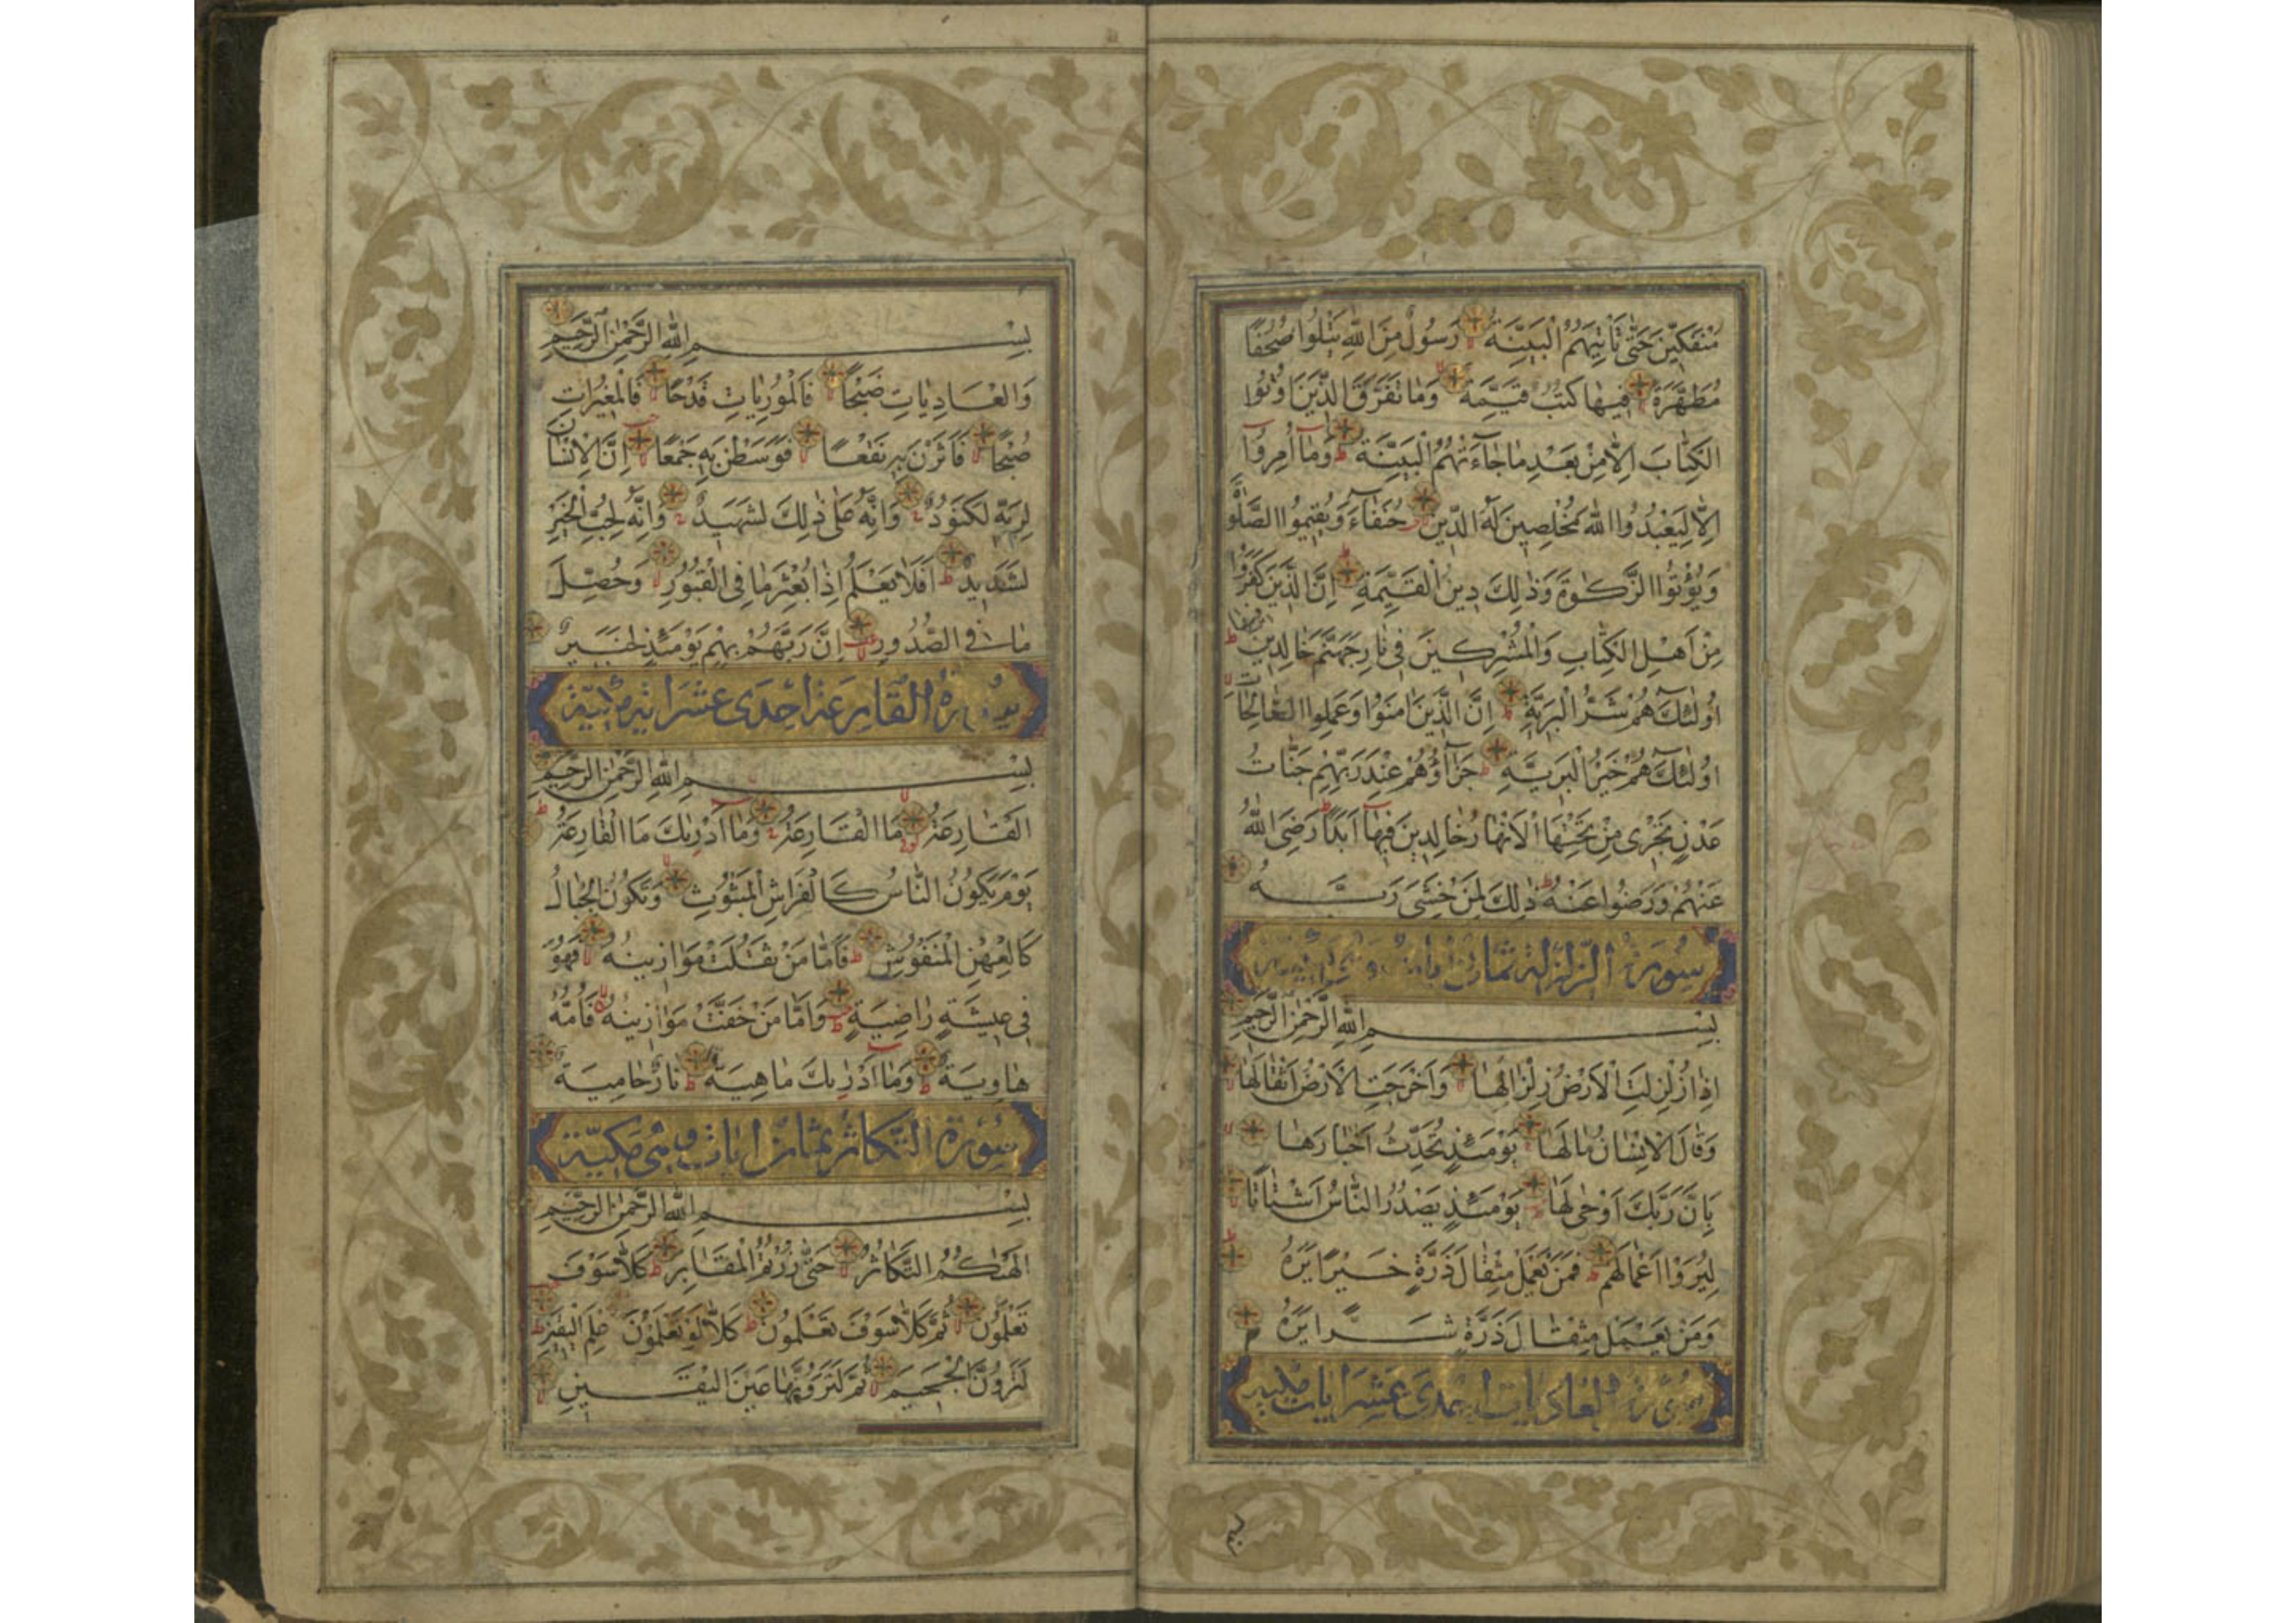 مُنْفَكِّينَ حَتّٰى تَأْتِيَهُمُ الْبَيِّنَةُ رَسُولٌ مِنَ اللّٰهِ يَتْلُوا صُحُفًا
مُطَهَّرَةً فِيهَا كُتُبٌ قَيِّمَةٌ وَمَا تَفَرَّقَ الَّذِينَ اُوتُوا
الْكِتَابَ اِلَّا مِنْ بَعْدِ مَا جَاءَتْهُمُ الْبَيِّنَةُ وَمَا اُمِرُوا
اِلَّا لِيَعْبُدُوا اللّٰهَ مُخْلِصِينَ لَهُ الدِّينَ حُنَفَاءَ وَيُقِيمُوا الصَّلٰوةَ
وَيُؤْتُوا الزَّكٰوةَ وَذٰلِكَ دِينُ الْقَيِّمَةِ اِنَّ الَّذِينَ كَفَرُوا
مِنْ اَهْلِ الْكِتَابِ وَالْمُشْرِكِينَ فِي نَارِ جَهَنَّمَ خَالِدِينَ فِيهَا
اُولٰئِكَ هُمْ شَرُّ الْبَرِيَّةِ اِنَّ الَّذِينَ اٰمَنُوا وَعَمِلُوا الصَّالِحَاتِ
اُولٰئِكَ هُمْ خَيْرُ الْبَرِيَّةِ جَزَاؤُهُمْ عِنْدَ رَبِّهِمْ جَنَّاتُ
عَدْنٍ تَجْرِى مِنْ تَحْتِهَا الْاَنْهَارُ خَالِدِينَ فِيهَا اَبَدًا رَضِيَ اللّٰهُ
عَنْهُمْ وَرَضُوا عَنْهُ ذٰلِكَ لِمَنْ خَشِيَ رَبَّهُ
سُورَةُ الزلزلة ثمان اٰيات
بِسْمِ اللّٰهِ الرَّحْمٰنِ الرَّحِيمِ
اِذَا زُلْزِلَتِ الْاَرْضُ زِلْزَالَهَا وَاَخْرَجَتِ الْاَرْضُ اَثْقَالَهَا
وَقَالَ الْاِنْسَانُ مَا لَهَا يَوْمَئِذٍ تُحَدِّثُ اَخْبَارَهَا
بِاَنَّ رَبَّكَ اَوْحٰى لَهَا يَوْمَئِذٍ يَصْدُرُ النَّاسُ اَشْتَاتًا
لِيُرَوْا اَعْمَالَهُمْ فَمَنْ يَعْمَلْ مِثْقَالَ ذَرَّةٍ خَيْرًا يَرَهُ
وَمَنْ يَعْمَلْ مِثْقَالَ ذَرَّةٍ شَرًّا يَرَهُ
سورة العاديات احدى عشر اٰيات مكية
بِسْمِ اللّٰهِ الرَّحْمٰنِ الرَّحِيمِ
وَالْعَادِيَاتِ ضَبْحًا فَالْمُورِيَاتِ قَدْحًا فَالْمُغِيرَاتِ
صُبْحًا فَاَثَرْنَ بِهِ نَقْعًا فَوَسَطْنَ بِهِ جَمْعًا اِنَّ الْاِنْسَانَ
لِرَبِّهِ لَكَنُودٌ وَاِنَّهُ عَلٰى ذٰلِكَ لَشَهِيدٌ وَاِنَّهُ لِحُبِّ الْخَيْرِ
لَشَدِيدٌ اَفَلَا يَعْلَمُ اِذَا بُعْثِرَ مَا فِي الْقُبُورِ وَحُصِّلَ
مَا فِي الصُّدُورِ اِنَّ رَبَّهُمْ بِهِمْ يَوْمَئِذٍ لَخَبِيرٌ
سورة القارعة احدى عشر اية مكية
بِسْمِ اللّٰهِ الرَّحْمٰنِ الرَّحِيمِ
اَلْقَارِعَةُ مَا الْقَارِعَةُ وَمَا اَدْرٰيكَ مَا الْقَارِعَةُ
يَوْمَ يَكُونُ النَّاسُ كَالْفَرَاشِ الْمَبْثُوثِ وَتَكُونُ الْجِبَالُ
كَالْعِهْنِ الْمَنْفُوشِ فَاَمَّا مَنْ ثَقُلَتْ مَوَازِينُهُ فَهُوَ
فِي عِيشَةٍ رَاضِيَةٍ وَاَمَّا مَنْ خَفَّتْ مَوَازِينُهُ فَاُمُّهُ
هَاوِيَةٌ وَمَا اَدْرٰيكَ مَا هِيَهْ نَارٌ حَامِيَةٌ
سورة التكاثر ثمان اٰيات وهى مكية
بِسْمِ اللّٰهِ الرَّحْمٰنِ الرَّحِيمِ
اَلْهٰيكُمُ التَّكَاثُرُ حَتّٰى زُرْتُمُ الْمَقَابِرَ كَلَّا سَوْفَ
تَعْلَمُونَ ثُمَّ كَلَّا سَوْفَ تَعْلَمُونَ كَلَّا لَوْ تَعْلَمُونَ عِلْمَ الْيَقِينِ
لَتَرَوُنَّ الْجَحِيمَ ثُمَّ لَتَرَوُنَّهَا عَيْنَ الْيَقِينِ